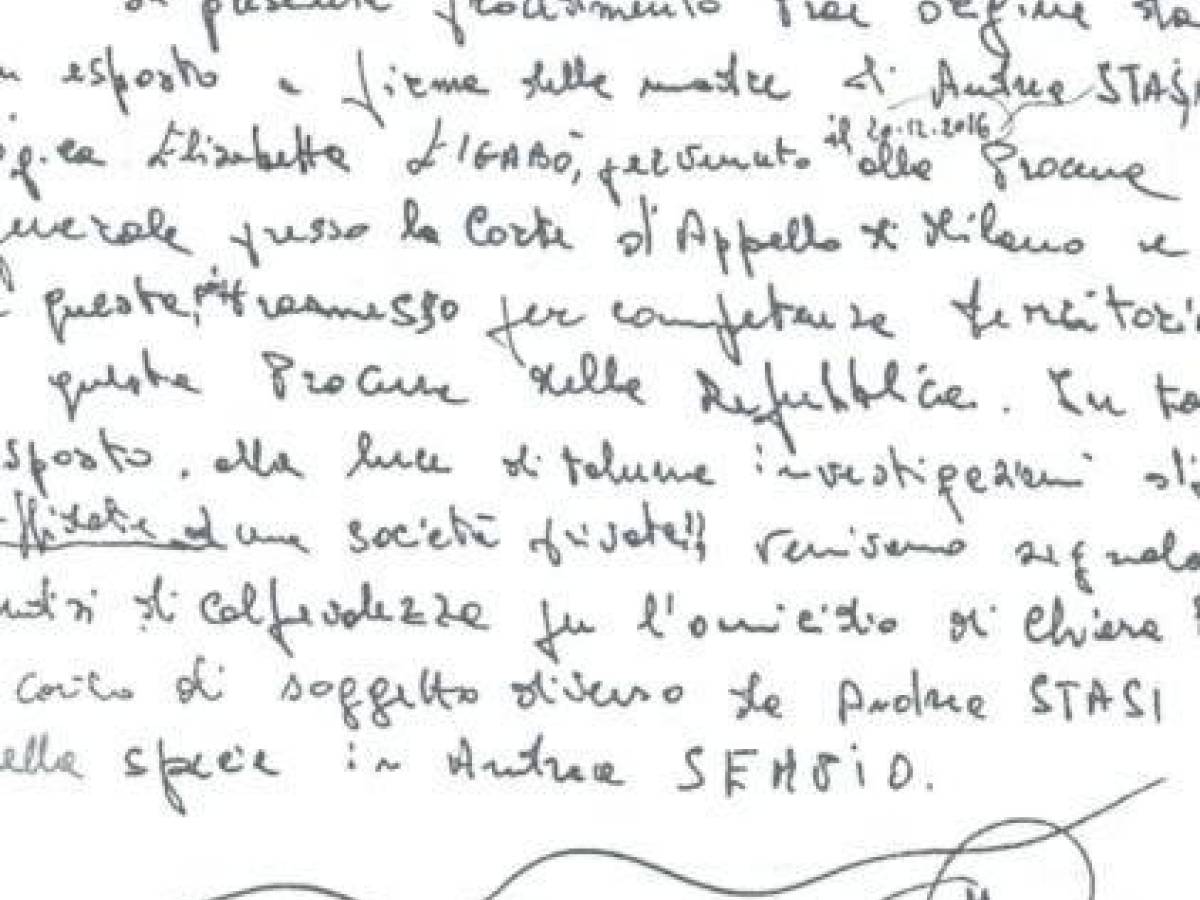 presente procedimento trae origine da
un esposto a firma della madre di Andrea STASI
sig.ra Elisabetta LIGABÒ, pervenuto il 20.12.2016 alla Procura
generale presso la Corte d'Appello di Milano e
questa, poi trasmesso per competenza territori
questa Procura della Repubblica. In ta
sposto, alla luce di talune investigazioni di
ffidate ad una società privata, venivano segnala
di colpevolezza per l'omicidio di Chiara
carico di soggetto diverso da Andrea STASI
ella specie in Andrea SEMPIO.